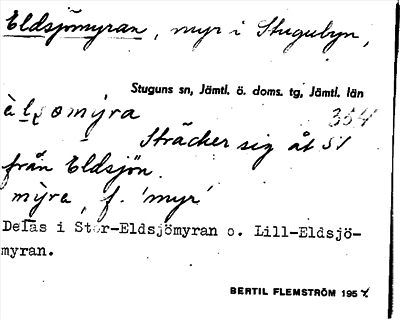 Eldsjömyran, myr i Stugubyn,
Stuguns sn, Jämtl. ö. doms. tg, Jämtl. län
354
Sträcker sig åt SV
från Eldsjön.
mỳra, f. 'myr'
Delas i Stor-Eldsjömyran o. Lill-Eldsjö-
myran.
BERTIL FLEMSTRÖM 195